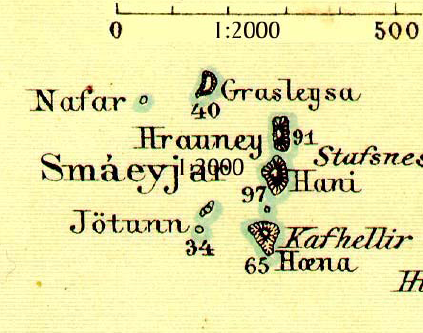 0 1:2000 500
Nafar
40
Grasleysa
Hrauney 91
Stafsnes
Smáeyjar 1:2000
97 Hani
Jötunn
34
Kafhellir
65 Hœna